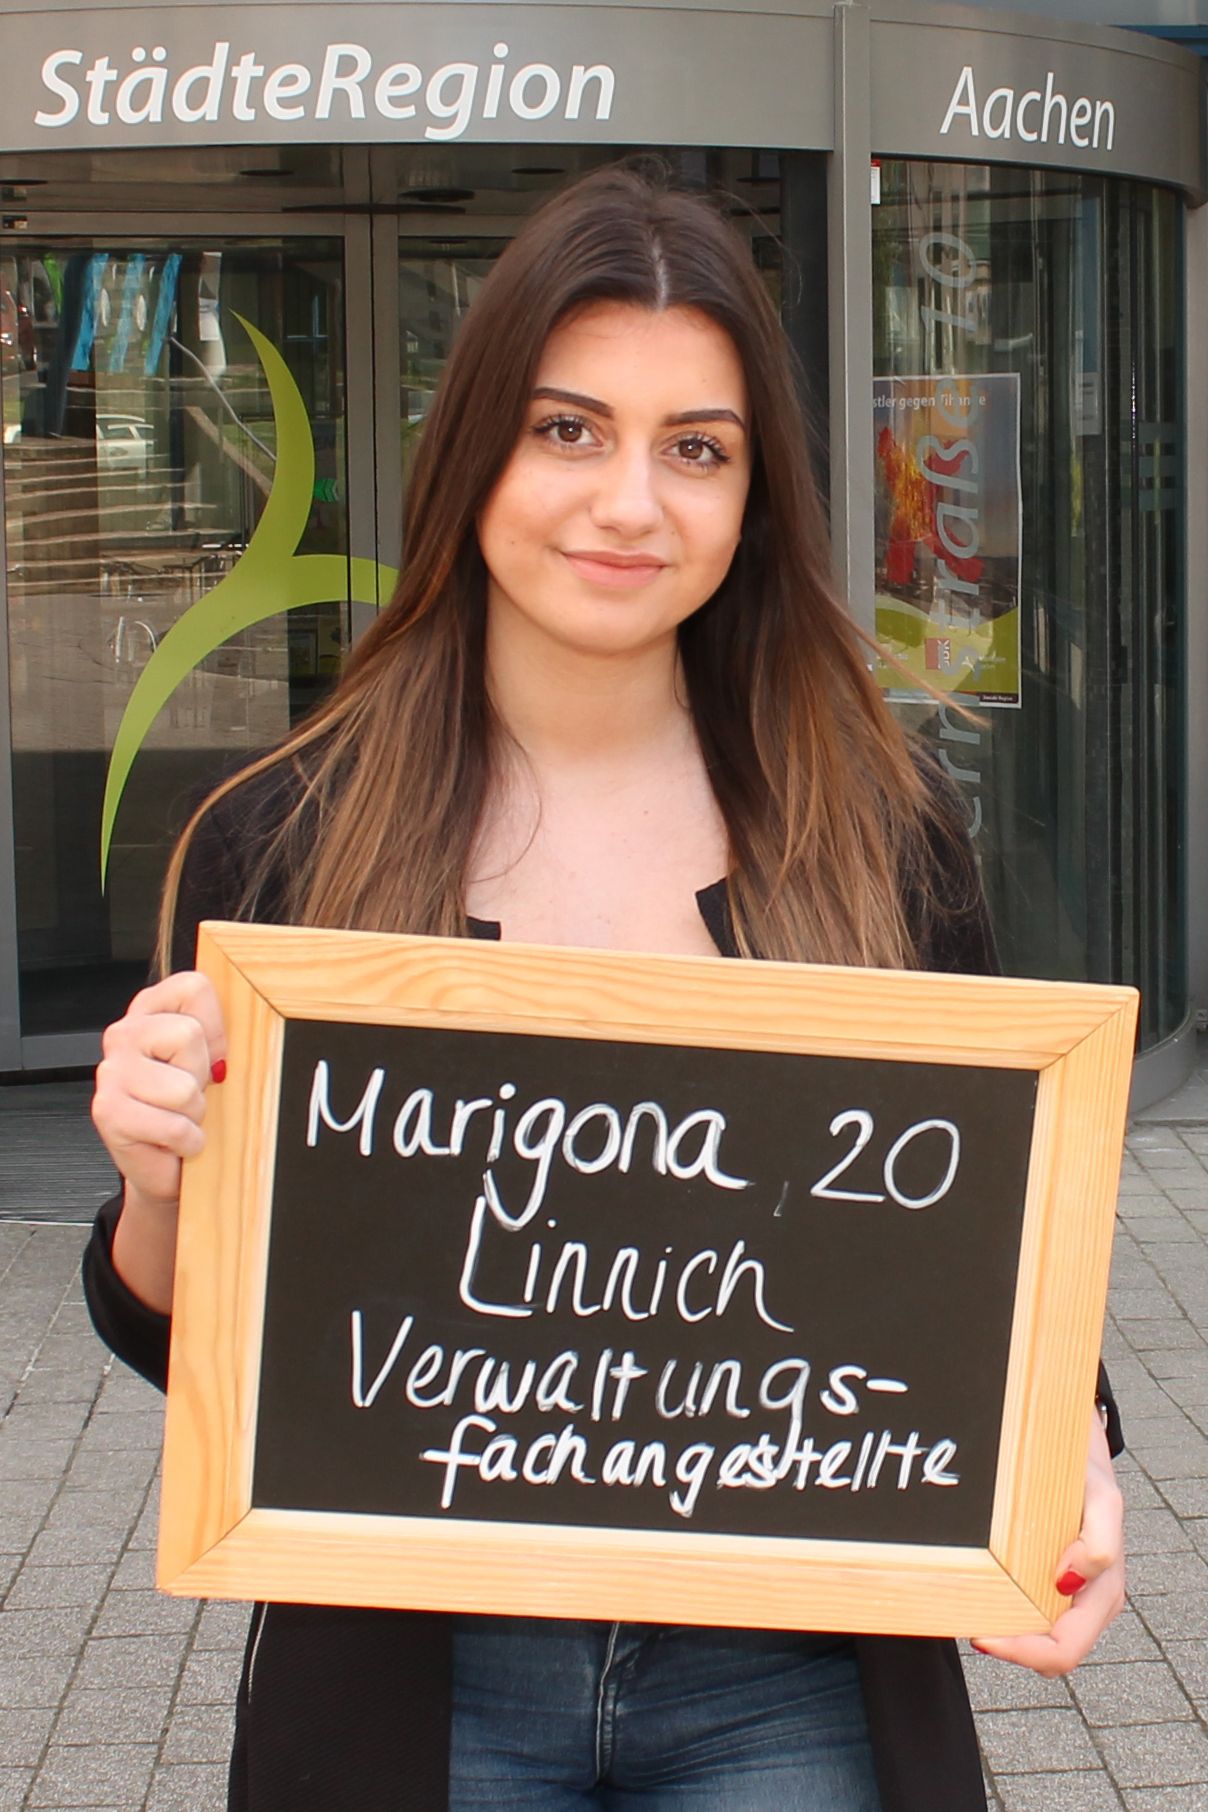 StädteRegion Aachen
stler gegen
straße 10
Marigona, 20
Linnich
Verwaltungs-
fachangestellte